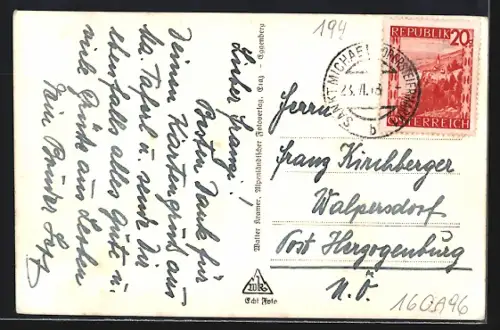 194
REPUBLIK
20g
ÖSTERREICH
SANKT MICHAEL
23. VI.
b
Lieber Franz!
Besten Dank für
Deinen Kartengruß aus
Ma. Taferl u. sende Dir
ebenfalls alles Gute u.
viele Grüße aus Leoben
Dein Bruder Sepp
Walter Kramer, Alpenländischer Fotoverlag, Graz - Eggenberg
Echt Foto
Herrn
Franz Kirchberger
Walpersdorf
Post Herzogenburg
N.Ö.